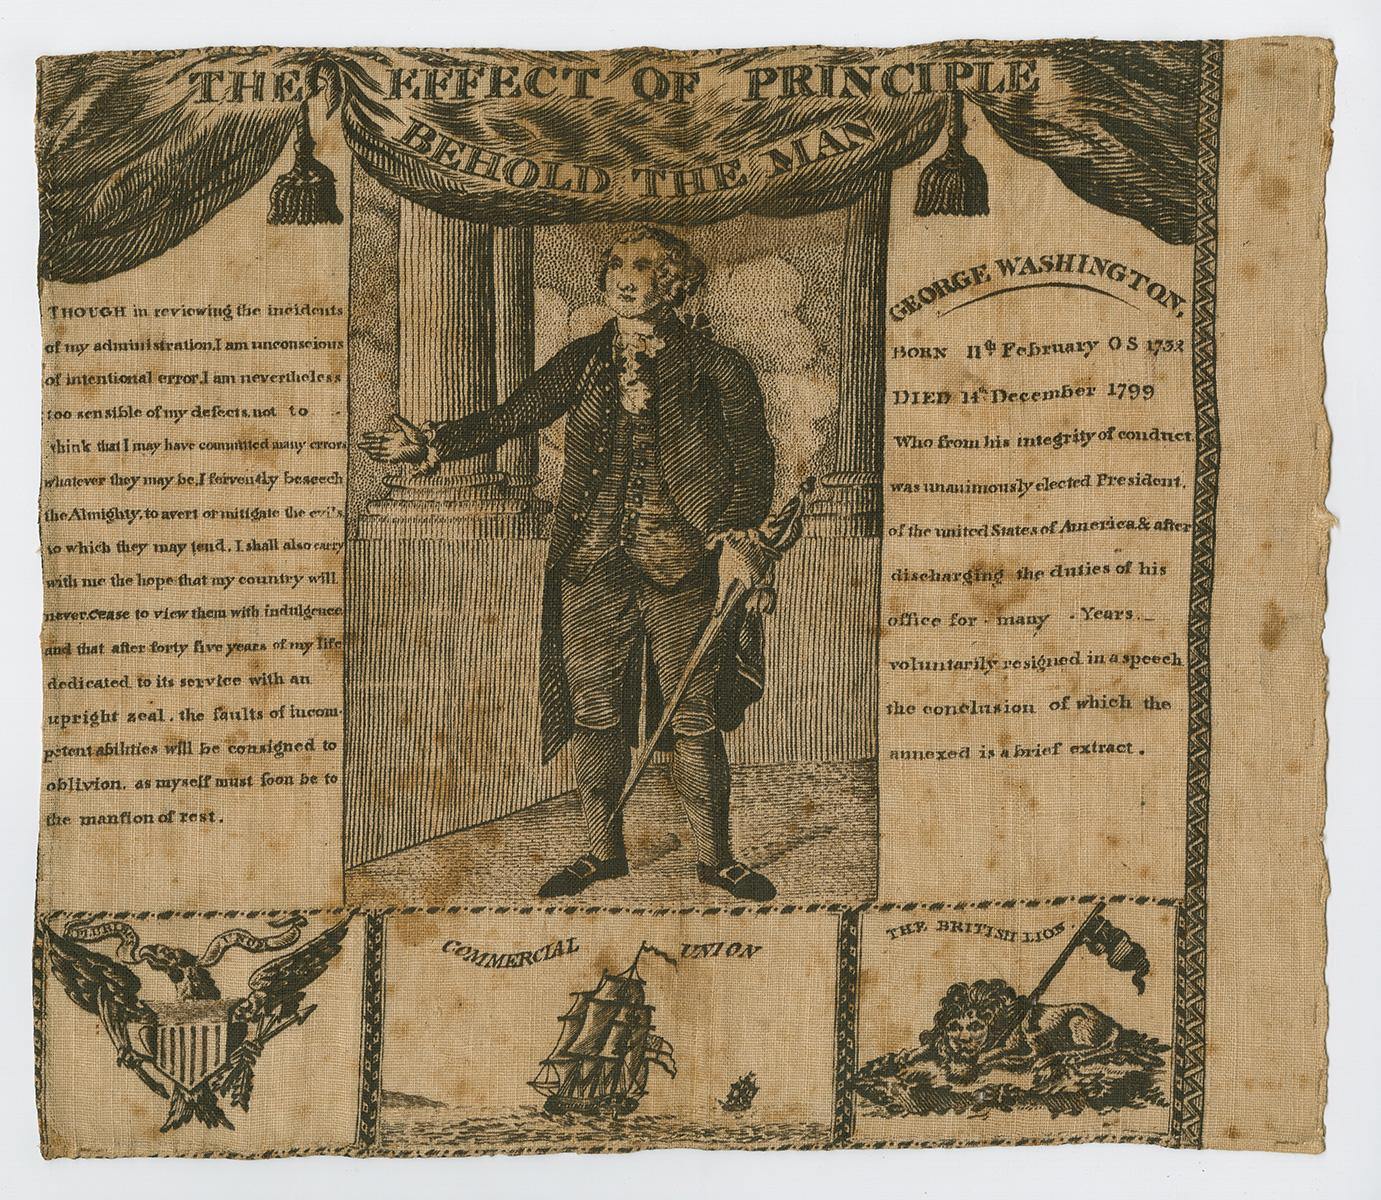 THE EFFECT OF PRINCIPLE
BEHOLD THE MAN
THOUGH in reviewing the incidents
of my administration, I am unconscious
of intentional error, I am nevertheless
too sensible of my defects, not to
think that I may have committed many errors
whatever they may be, I fervently beseech
the Almighty, to avert or mitigate the evils,
to which they may tend. I shall also carry
with me the hope that my country will
never cease to view them with indulgence
and that after forty five years of my life
dedicated to its service with an
upright zeal, the faults of incom-
petent abilities will be consigned to
oblivion, as myself must ſoon be to
the manſion of rest.
GEORGE WASHINGTON,
BORN 11th February OS 1732
DIED 14th December 1799
Who from his integrity of conduct
was unanimously elected President,
of the united States of America & after
discharging the duties of his
office for many Years
voluntarily resigned in a speech
the conclusion of which the
annexed is a brief extract.
E PLURIBUS UNUM
COMMERCIAL UNION
THE BRITISH LION.